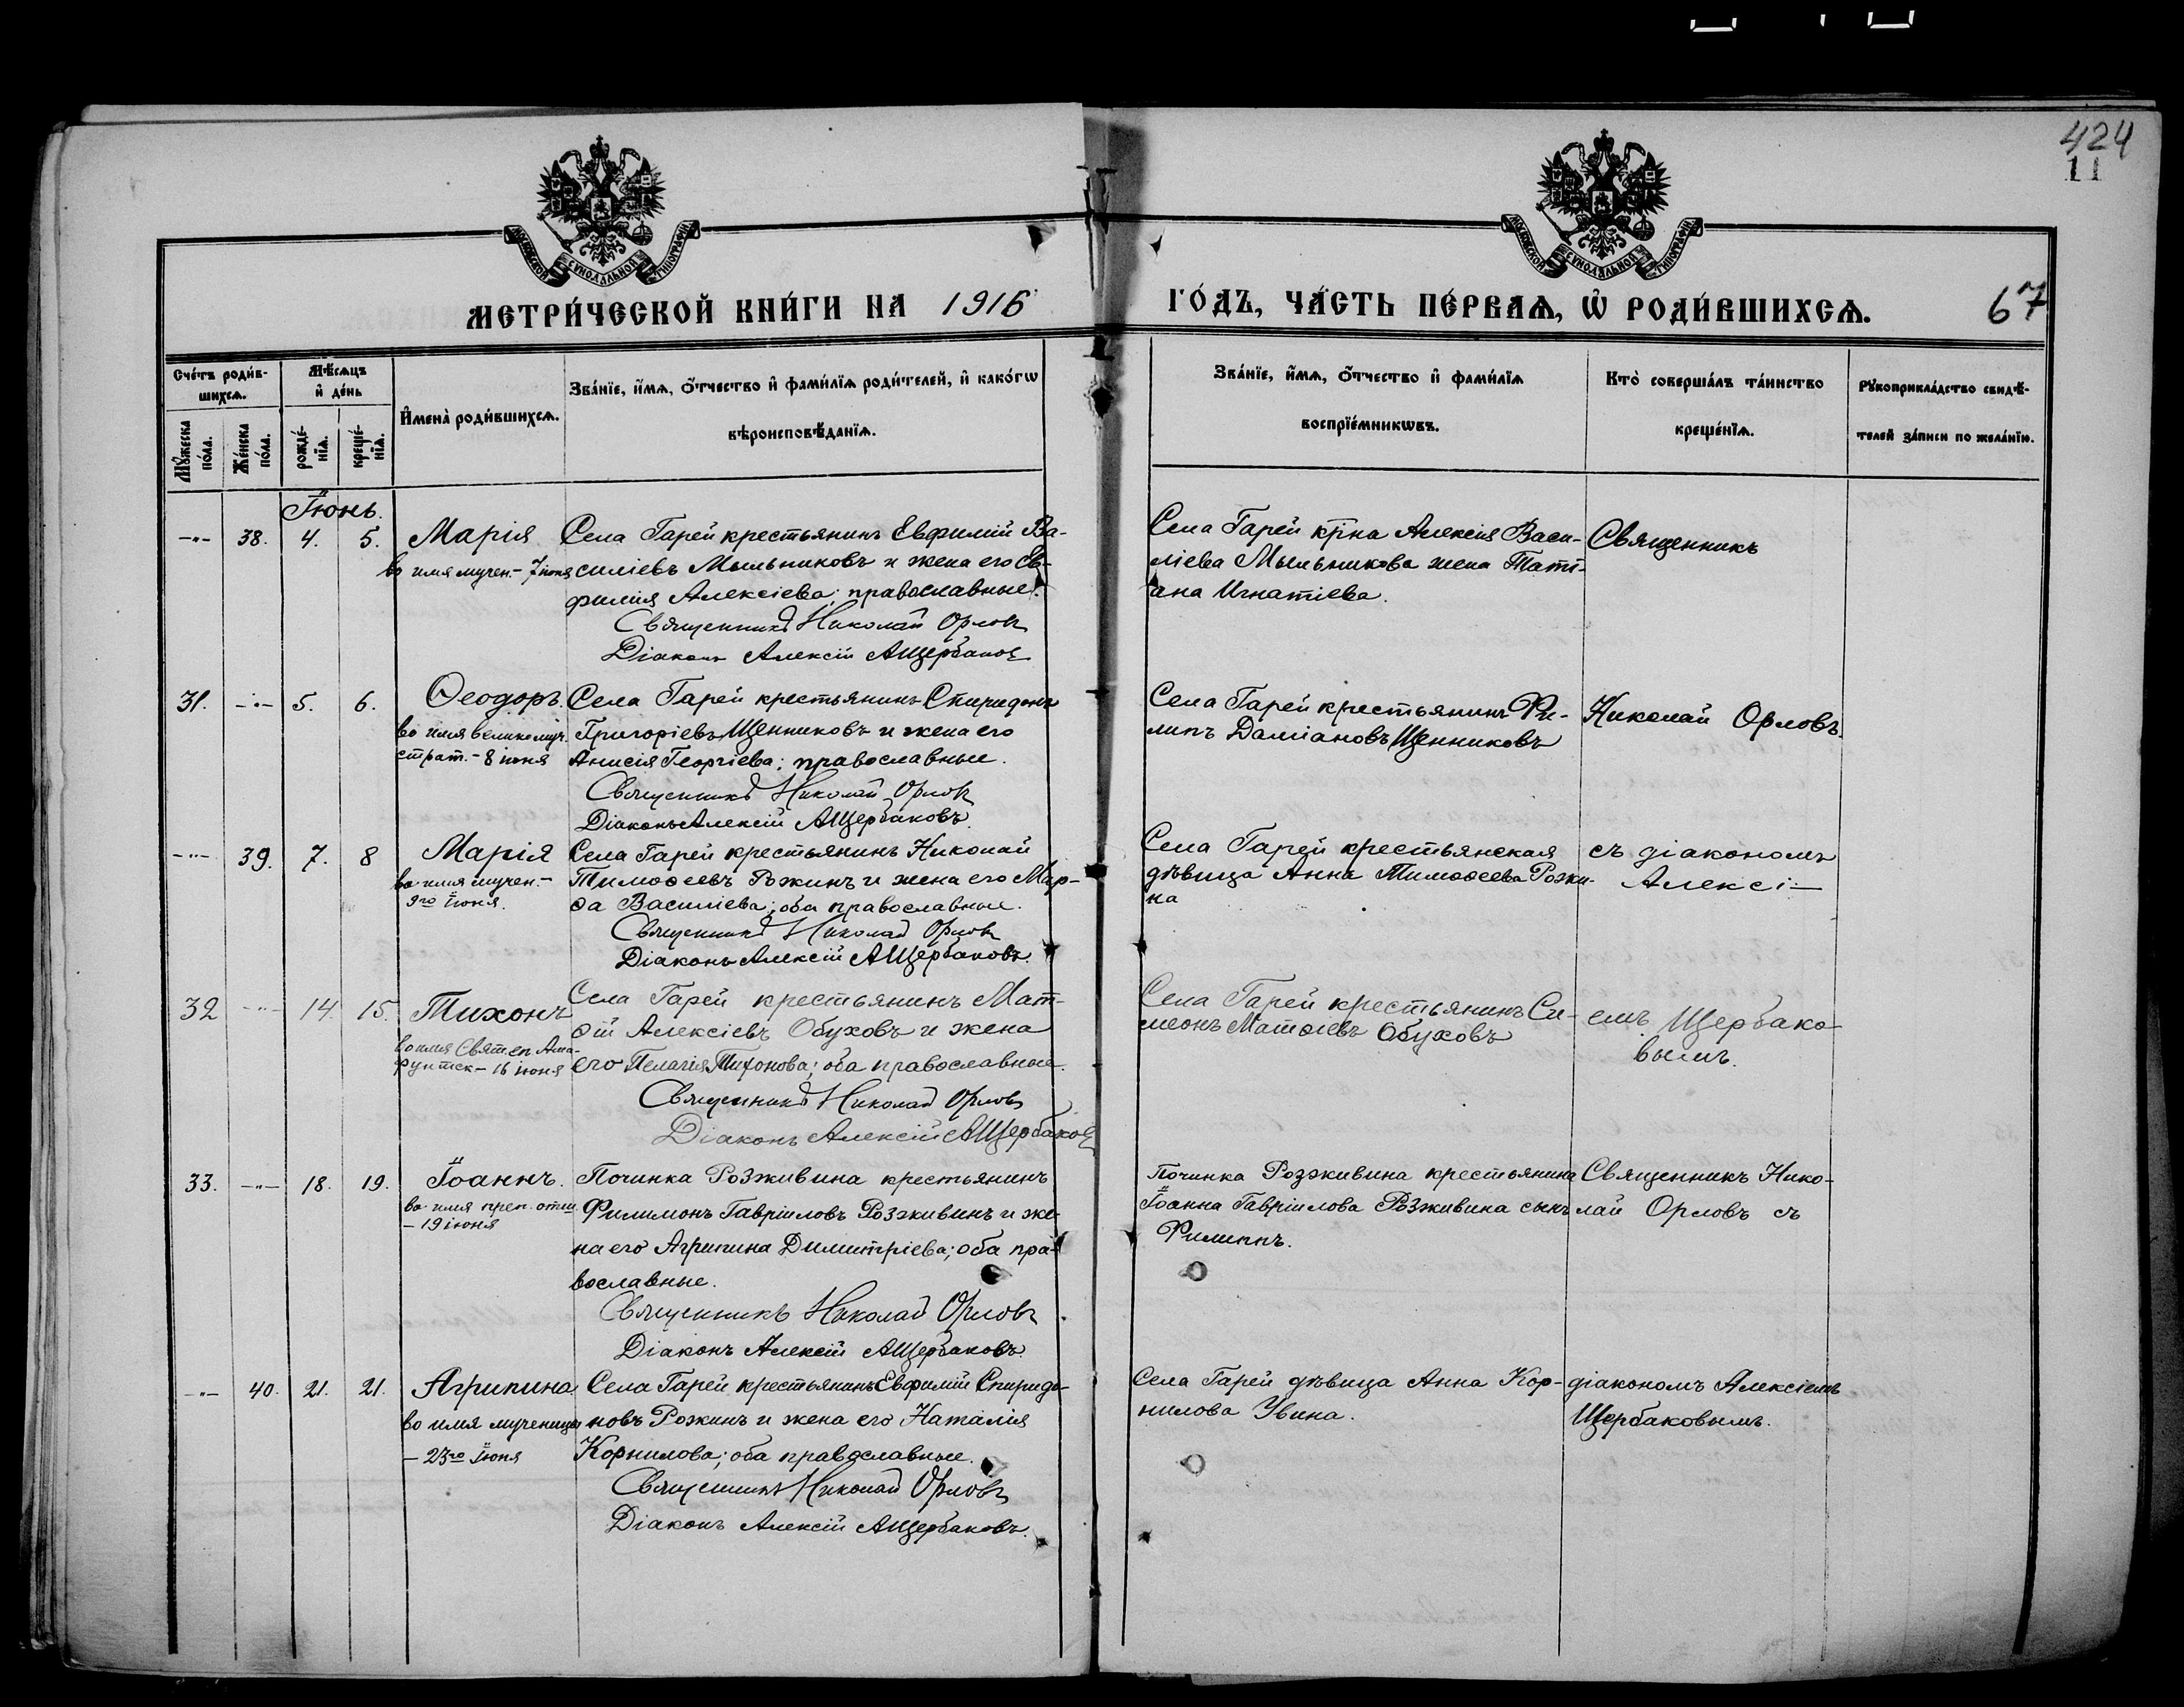 424
11
МОСКОВСКОЙ СѴНОДАЛЬНОЙ ТИПОГРАФІИ
МОСКОВСКОЙ СѴНОДАЛЬНОЙ ТИПОГРАФІИ
МЕТРИ́ЧЕСКОЙ КНИ́ГИ НА 1916
ГО́ДЪ, ЧА́СТЬ ПЕ́РВАѦ, Ѡ҆ РОДИ́ВШИХСѦ.
67
Сче́тъ роди́в-
шихсѧ.
Мꙋ́жеска по́ла.
Же́нска по́ла.
Мѣ́сѧцъ
и҆ де́нь
рожде́-
нїѧ.
креще́-
нїѧ.
И҆мена̀ роди́вшихсѧ.
Зва́нїе, и҆́мѧ, ѻ҆́тчество и҆ фами́лїѧ роди́телей, и҆ како́гѡ
вѣроисповѣ́данїѧ.
Зва́нїе, и҆́мѧ, ѻ҆́тчество и҆ фами́лїѧ
воспрїе́мникѡвъ.
Кто̀ соверша́лъ та́инство
креще́нїѧ.
Рꙋкоприкла́дство свидѣ́-
телей за́писи по жела́нїю.
Іюнь.
-"- 38. 4. 5. Марія
во имя мучен.- 7 іюня
Села Гарей крестьянинъ Евфимій Ва-
силіевъ Мыльниковъ и жена его Ев-
фимія Алексіева; православные.
Священникъ Николай Орловъ
Діаконъ Алексій А Щербаковъ
Села Гарей кр̅на Алексія Васи-
ліева Мыльникова жена Таті-
ана Игнатіева.
Священникъ
31. -"- 5. 6. Ѳеодоръ.
во имя великомуч.
страт. - 8 іюня
Села Гарей крестьянинъ Спиридонъ
Григоріевъ Щенниковъ и жена его
Анисія Георгіева; православные.
Священникъ Николай Орловъ
Діаконъ Алексій А Щербаковъ
Села Гарей крестьянинъ Фи-
липъ Даміановъ Щенниковъ
Николай Орловъ.
-"- 39. 7. 8 Марія
во имя мучен.-
9го іюня.
Села Гарей крестьянинъ Николай
Тимоѳеевъ Рожинъ и жена его Мар-
ѳа Василіева; оба православные.
Священникъ Николай Орловъ
Діаконъ Алексій А Щербаковъ.
Села Гарей крестьянская
дѣвица Анна Тимоѳеева Рожи-
на
съ діакономъ
Алексі-
32 -"- 14. 15. Тихонъ
во имя Свят. еп. Ама-
фунтск - 16 іюня
Села Гарей крестьянинъ Мат-
ѳій Алексіевъ Обуховъ и жена
его Пелагія Тихонова; оба православные.
Священникъ Николай Орловъ
Діаконъ Алексій А Щербаковъ
Села Гарей крестьянинъ Си-
меонъ Матѳіевъ Обуховъ
емъ Щербако-
вымъ.
33. -"- 18. 19. Іоаннъ.
во имя преп. отш
- 19 іюня
Починка Розживина крестьянинъ
Филимонъ Гавріиловъ Розживинъ и же-
на его Агрипина Димитріева; оба пра-
вославные.
Священникъ Николай Орловъ
Діаконъ Алексій А Щербаковъ.
Починка Розживина крестьянина
Іоанна Гавріилова Розживина сынъ
Филиппъ.
Священникъ Нико-
лай Орловъ съ
-"- 40. 21. 21. Агрипина
во имя мученицы
- 23го іюня
Села Гарей крестьянинъ Евфимій Спиридо-
новъ Рожинъ и жена его Наталія
Корнилова; оба православные.
Священникъ Николай Орловъ
Діаконъ Алексій А Щербаковъ.
Села Гарей дѣвица Анна Кор-
нилова Увина.
діакономъ Алексіемъ
Щербаковымъ.